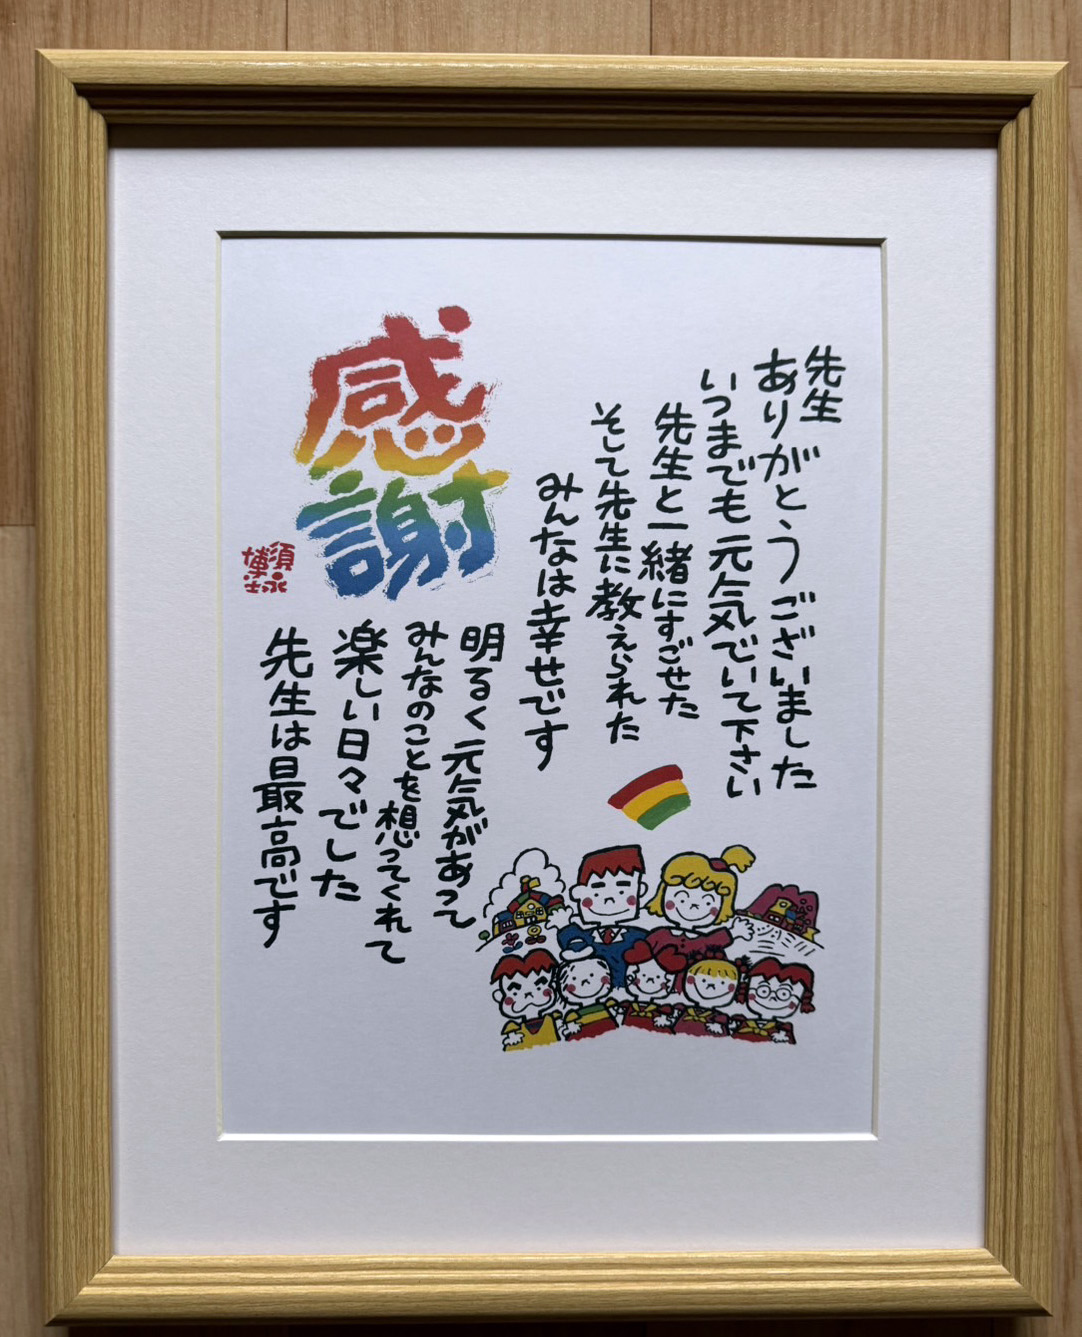 先生
ありがとうございました
いつまでも元気でいて下さい
先生と一緒にすごせた
そして先生に教えられた
みんなは幸せです
感謝
明るく元気があって
みんなのことを想ってくれて
楽しい日々でした
先生は最高です
須永
博士